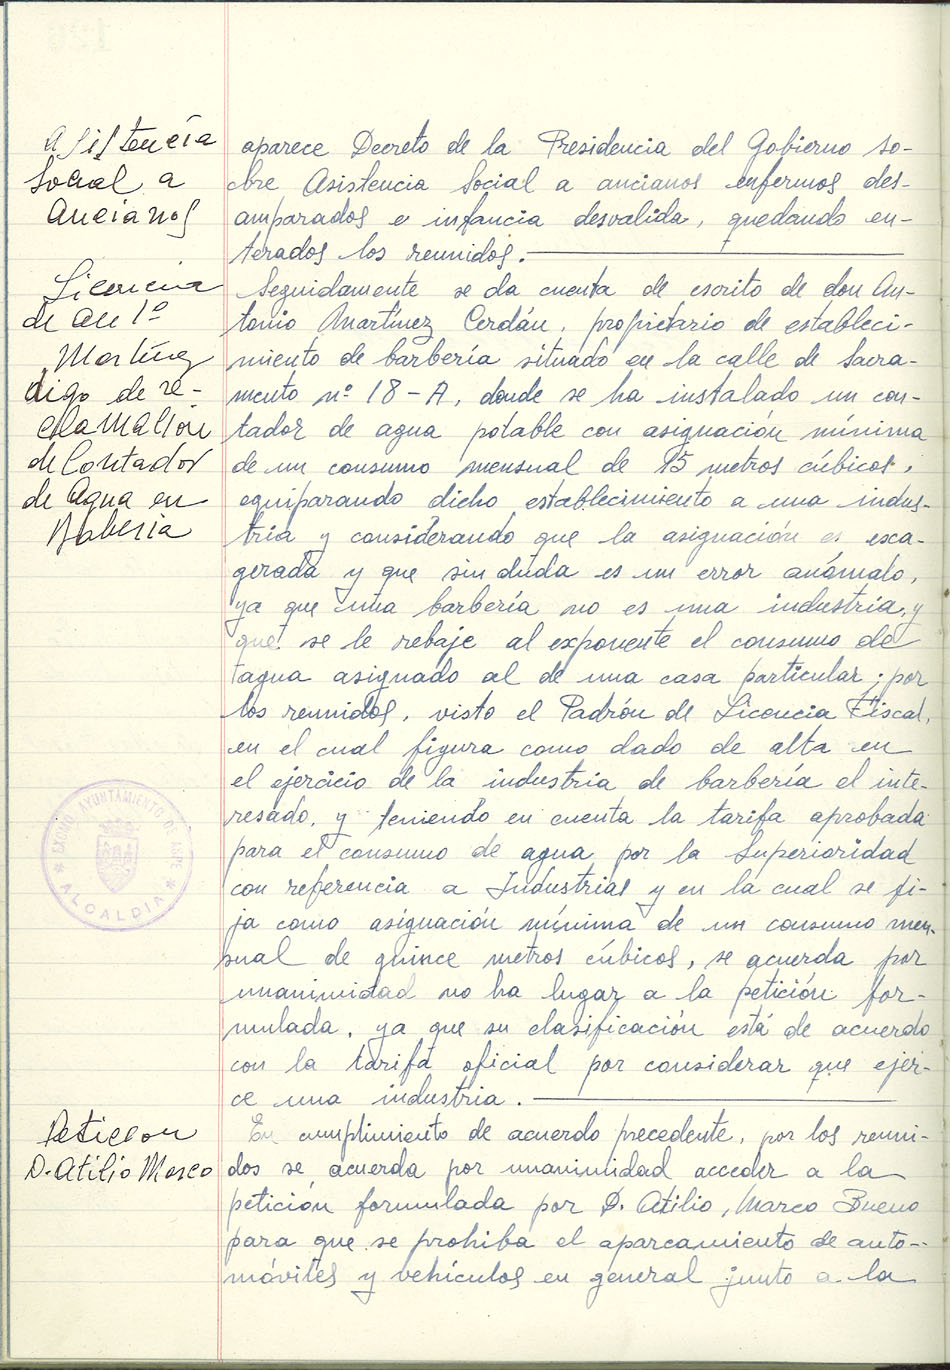 Asistencia
Social a
Ancianos
aparece Decreto de la Presidencia del Gobierno so-
bre Asistencia Social a ancianos enfermos des-
amparados e infancia desvalida, quedando en-
terados los reunidos.
Licencia
de
Martínez
digo de re-
clamación
de Contador
de Agua en
Baberia
Seguidamente se da cuenta de escrito de don An-
tonio Martínez Cerdán, propietario de estableci-
miento de barbería situado en la calle de Sacra-
mento nº 18-A, donde se ha instalado un con-
tador de agua potable con asignación mínima
de un consumo mensual de 15 metros cúbicos,
equiparando dicho establecimiento a una indus-
tria y considerando que la asignación es exa-
gerada y que sin duda es un error anómalo,
ya que una barbería no es una industria, y
que se le rebaje al exponente el consumo de
agua asignado al de una casa particular; por
los reunidos, visto el Padrón de Licencia Fiscal,
en el cual figura como dado de alta en
el ejercicio de la industria de barbería el inte-
resado, y teniendo en cuenta la tarifa aprobada
para el consumo de agua por la Superioridad
con referencia a Industrias y en la cual se fi-
ja como asignación mínima de un consumo men-
sual de quince metros cúbicos, se acuerda por
unanimidad no ha lugar a la petición for-
mulada, ya que su clasificación está de acuerdo
con la tarifa oficial por considerar que ejer-
ce una industria.
EXCMO. AYUNTAMIENTO DE ASPE
* ALCALDIA *
Peticion
D. Atilio Marco
En cumplimiento de acuerdo precedente, por los reuni-
dos se acuerda por unanimidad acceder a la
petición formulada por D. Atilio, Marco Bueno
para que se prohiba el aparcamiento de auto-
móviles y vehículos en general junto a la